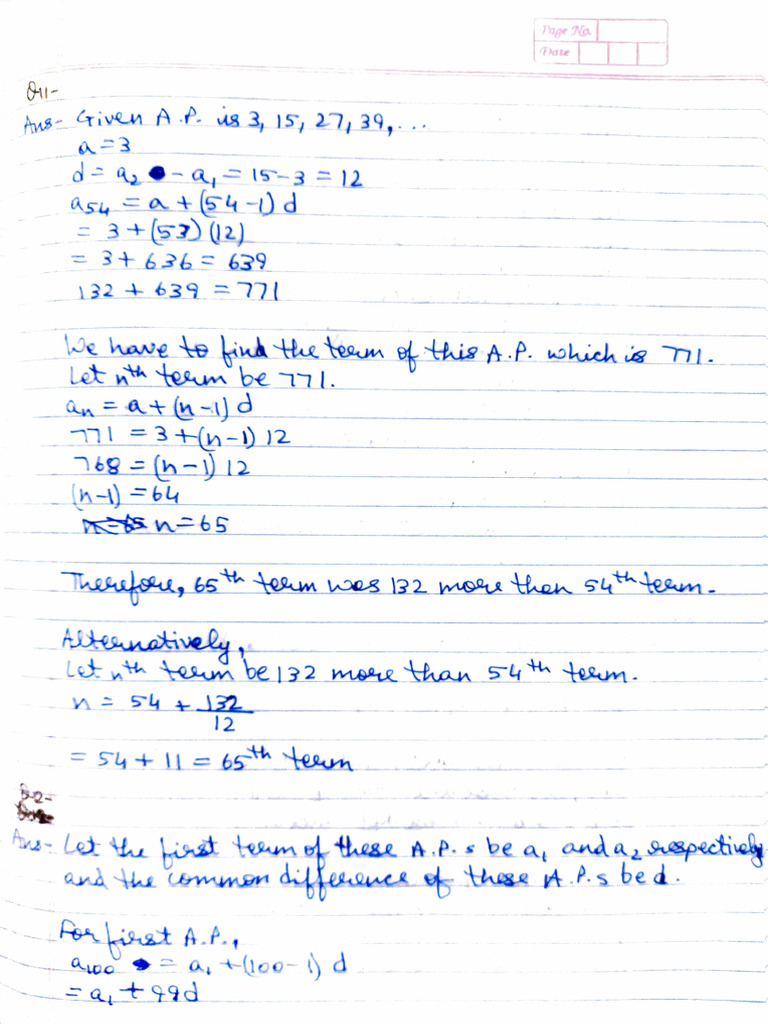 Page No.
Date
Q11-
Ans- Given A.P. is 3, 15, 27, 39, ...
a = 3
d = a₂ - a₁ = 15 - 3 = 12
a₅₄ = a + (54-1) d
= 3 + (53) (12)
= 3 + 636 = 639
132 + 639 = 771
We have to find the term of this A.P. which is 771.
Let nth term be 771.
aₙ = a + (n-1) d
771 = 3 + (n-1) 12
768 = (n-1) 12
(n-1) = 64
n = 65
Therefore, 65th term was 132 more than 54th term.
Alternatively,
Let nth term be 132 more than 54th term.
n = 54 + 132/12
= 54 + 11 = 65th term
Ans- Let the first term of these A.P.s be a₁ and a₂ respectively
and the common difference of these A.P.s be d.
For first A.P.,
a₁₀₀ = a₁ + (100-1) d
= a₁ + 99d